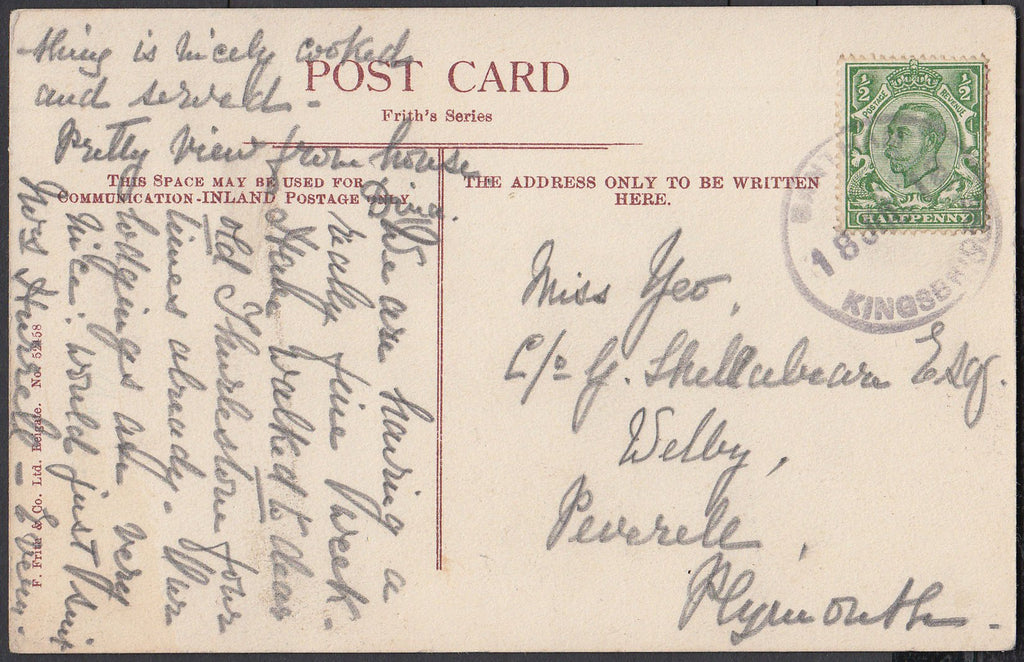 POST CARD
Frith's Series
THIS SPACE MAY BE USED FOR
COMMUNICATION-INLAND POSTAGE ONLY
THE ADDRESS ONLY TO BE WRITTEN
HERE.
1/2 1/2
POSTAGE REVENUE
HALFPENNY
18
KINGSBRIDGE
Miss Yeo,
C/o G. Shellabear Esq.
Welby,
Peverell,
Plymouth.
We are having a
really fine week.
Have walked to dear
old Thurlestone four
times already. Our
lodgings are very
nice: would just suit
Mrs Hurrell - Every-
thing is nicely cooked
and served -
Pretty view from house
F. Frith & Co. Ltd. Reigate. No. 52458